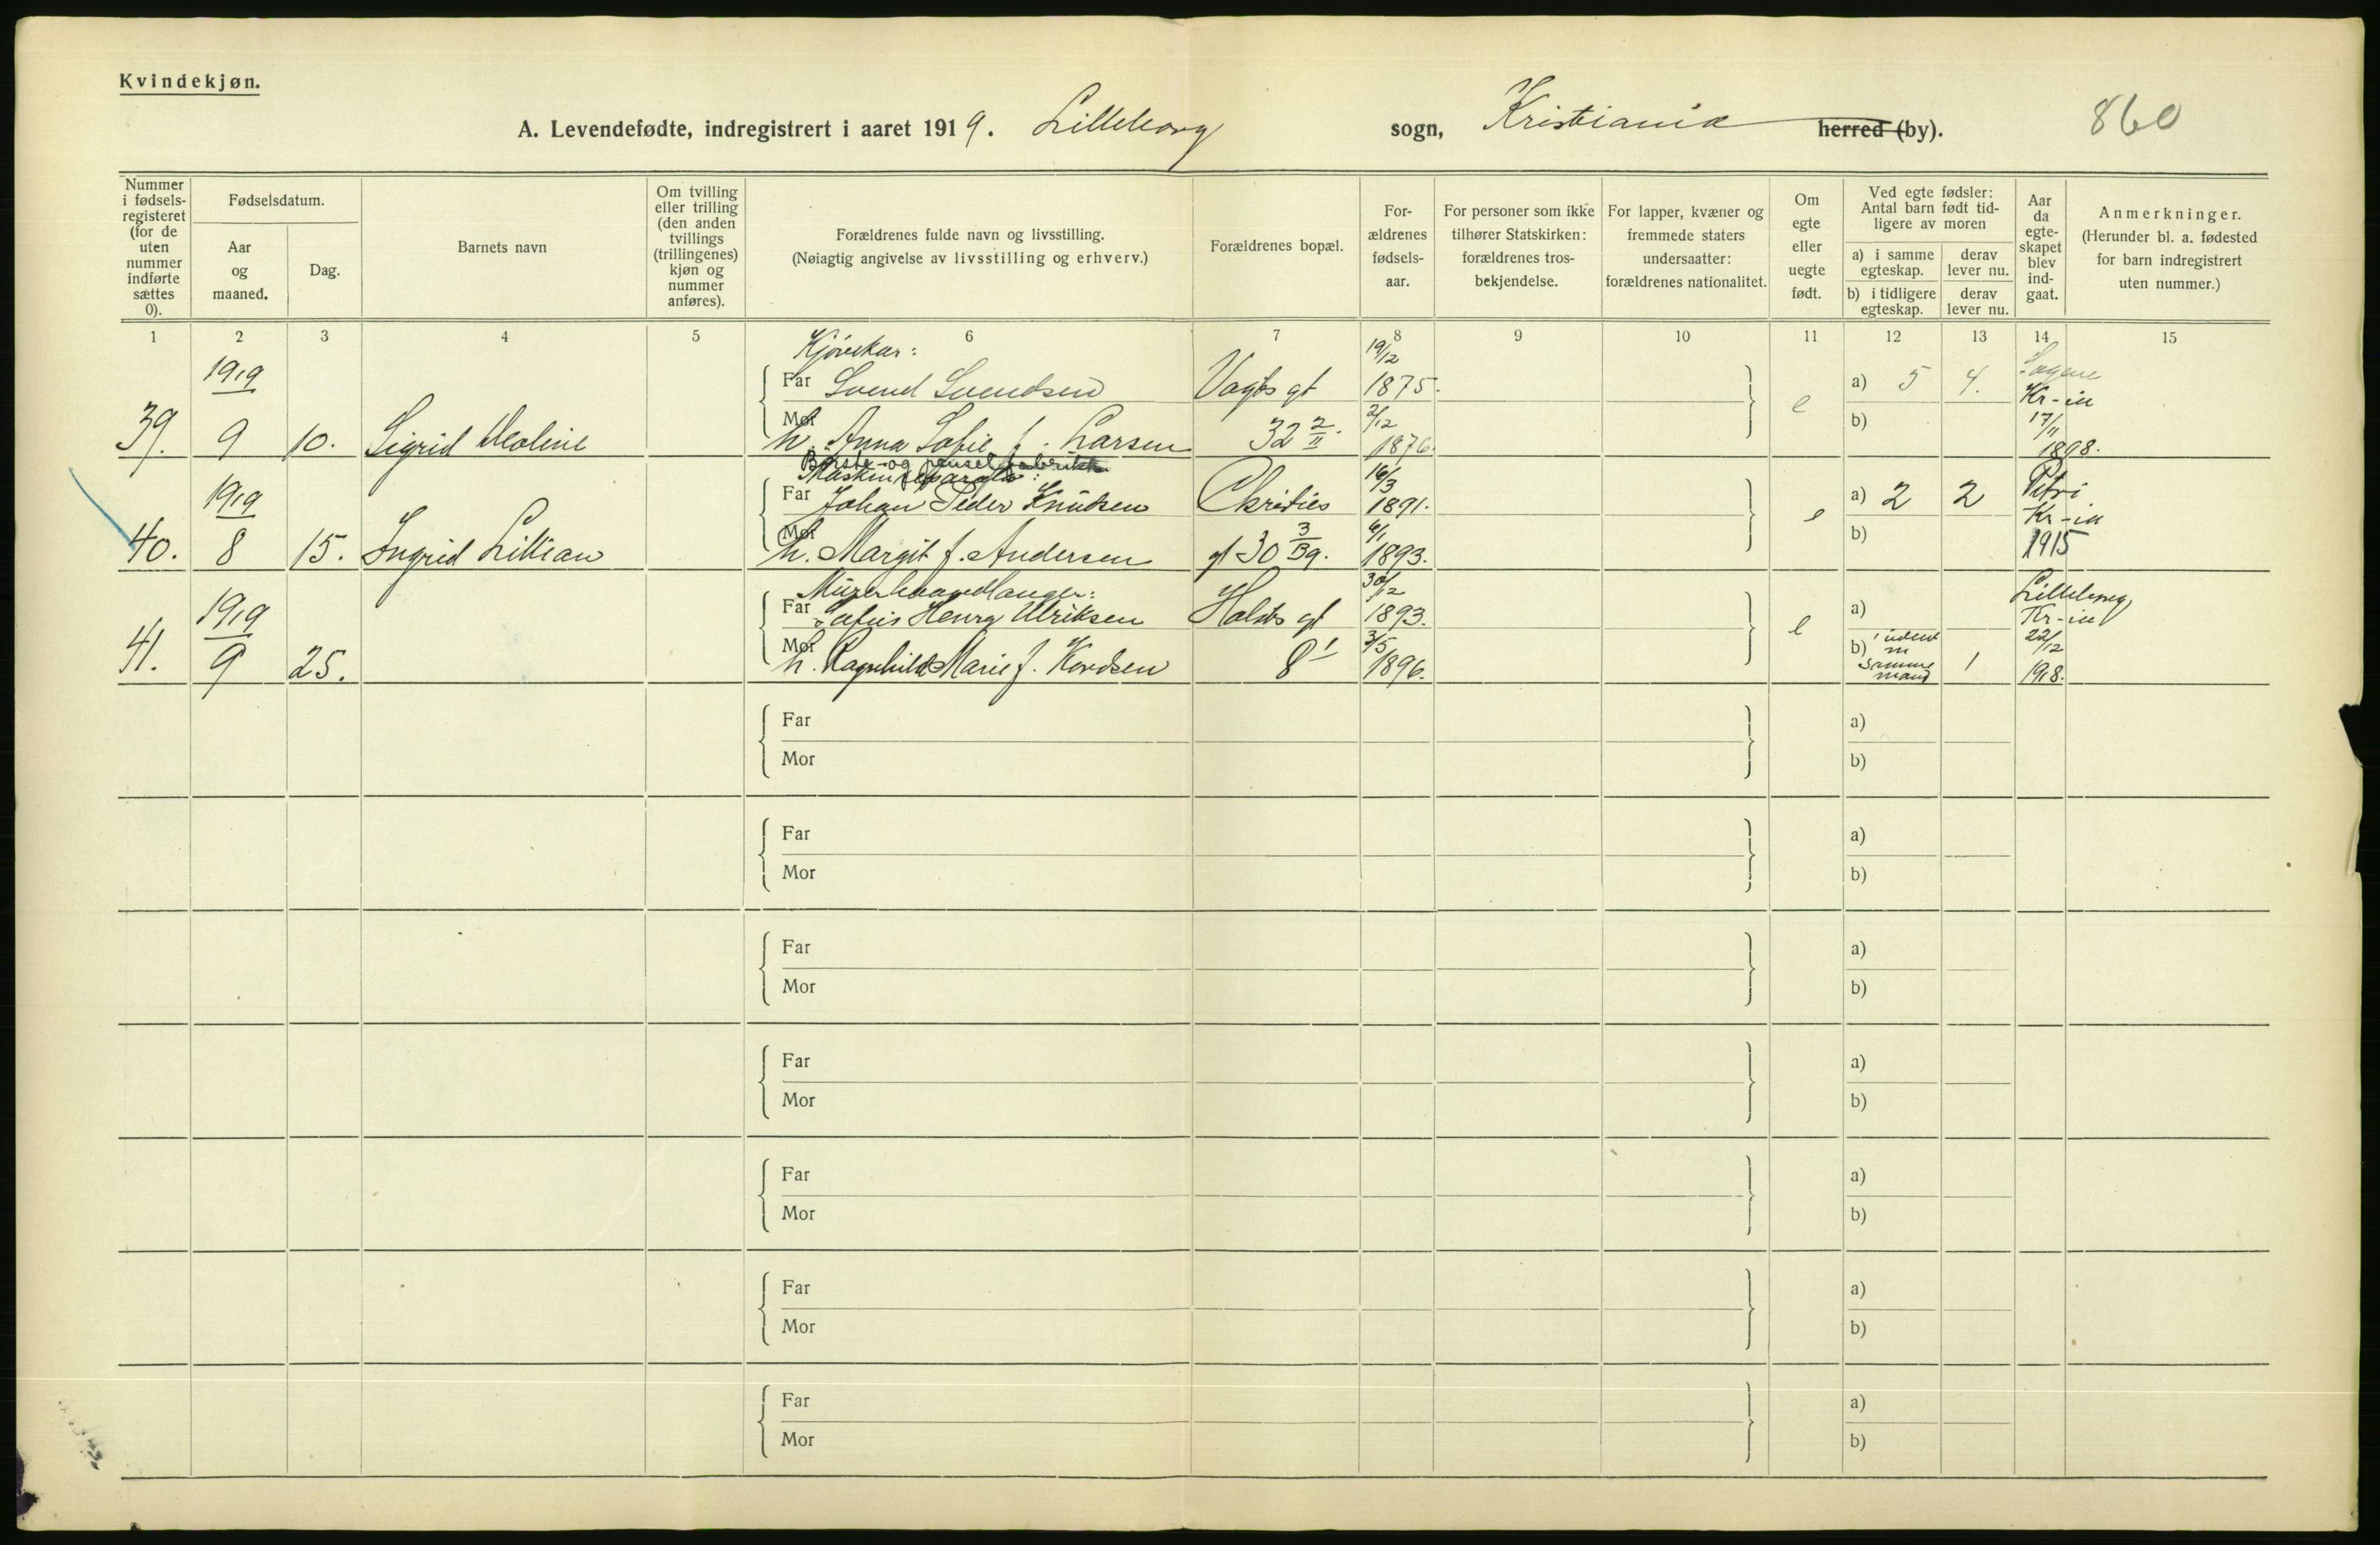 Kvindekjøn.
A. Levendefødte, indregistrert i aaret 1919. Lilleborg sogn, Kristiania herred (by). 860
Nummer i fødsels-registeret (for de uten nummer indførte sættes 0).
Fødselsdatum.
Aar og maaned.
Dag.
Barnets navn
Om tvilling eller trilling (den anden tvillings (trillingenes) kjøn og nummer anføres).
Forældrenes fulde navn og livsstilling.
(Nøiagtig angivelse av livsstilling og erhverv.)
Forældrenes bopæl.
For-ældrenes fødsels-aar.
For personer som ikke tilhører Statskirken: forældrenes tros-bekjendelse.
For lapper, kvæner og fremmede staters undersaatter: forældrenes nationalitet.
Om egte eller uegte født.
Ved egte fødsler: Antal barn født tid-ligere av moren
a) i samme egteskap.
derav lever nu.
b) i tidligere egteskap.
derav lever nu.
Aar da egte-skapet blev ind-gaat.
Anmerkninger.
(Herunder bl. a. fødested for barn indregistrert uten nummer.)
1 2 3 4 5 6 7 8 9 10 11 12 13 14 15
Kjørekar: 19/12
1919 Far Svend Svendsen Vogts gt 1875. a) 5 4. Sagene Kr-ia
39. 9 10. Sigrid Mor h. Anna Sofie f. Larsen 32 2/II. 2/12 1876. e b) 17/11 1898.
Børste- og penselfabrikk
16/3
1919 Far Johan Peder Knutsen Christies 1891. a) 2 2 Petri Kr-ia
40. 8 15. Ingrid Lillian Mor h. Margit f. Andersen gt 30 3/39. 6/1 1893. e b) 1915
Murerhaandlanger: 30/12
1919 Far Henry Ulriksen Holsts gt 1893. a) Lilleborg Kr-ia
41. 9 25. Mor h. Ragnhild Marie f. Kordsen 8 I 3/5 1896. e b) 1 udent m samme mand 1 22/12 1918.
Far a)
Mor b)
Far a)
Mor b)
Far a)
Mor b)
Far a)
Mor b)
Far a)
Mor b)
Far a)
Mor b)
Far a)
Mor b)